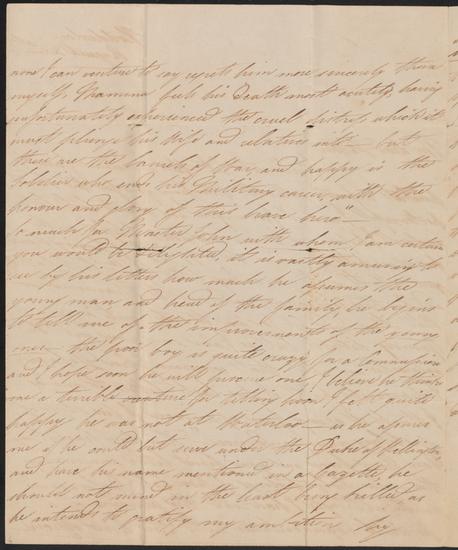 none I can venture to say regrets him more sincerely than
myself, Mamma feels his Death most acutely, having
unfortunately experienced the cruel distress which it
must plunge his Wife and relatives into — but
these are the laurels of War, and happy is the
Soldier who ends his Military career, with the
honour and glory of this brave hero"
so much for Master John with whom I am certain
you would be delighted, it is vastly amusing to
see by his letters how much he assumes the
young man and head of the family, he begins
to tell me of the improvements of the young
ones — the poor boy is quite crazy for a Commission
and I hope soon he will procure one, I believe he thinks
me a terrible for telling him I felt quite
happy he was not at Waterloo — as he assures
me if he could but serve under the Duke of Wellington
and have his name mentioned in a Gazette, he
should not mind in the least being killed, as
he intends to gratify my ambition by